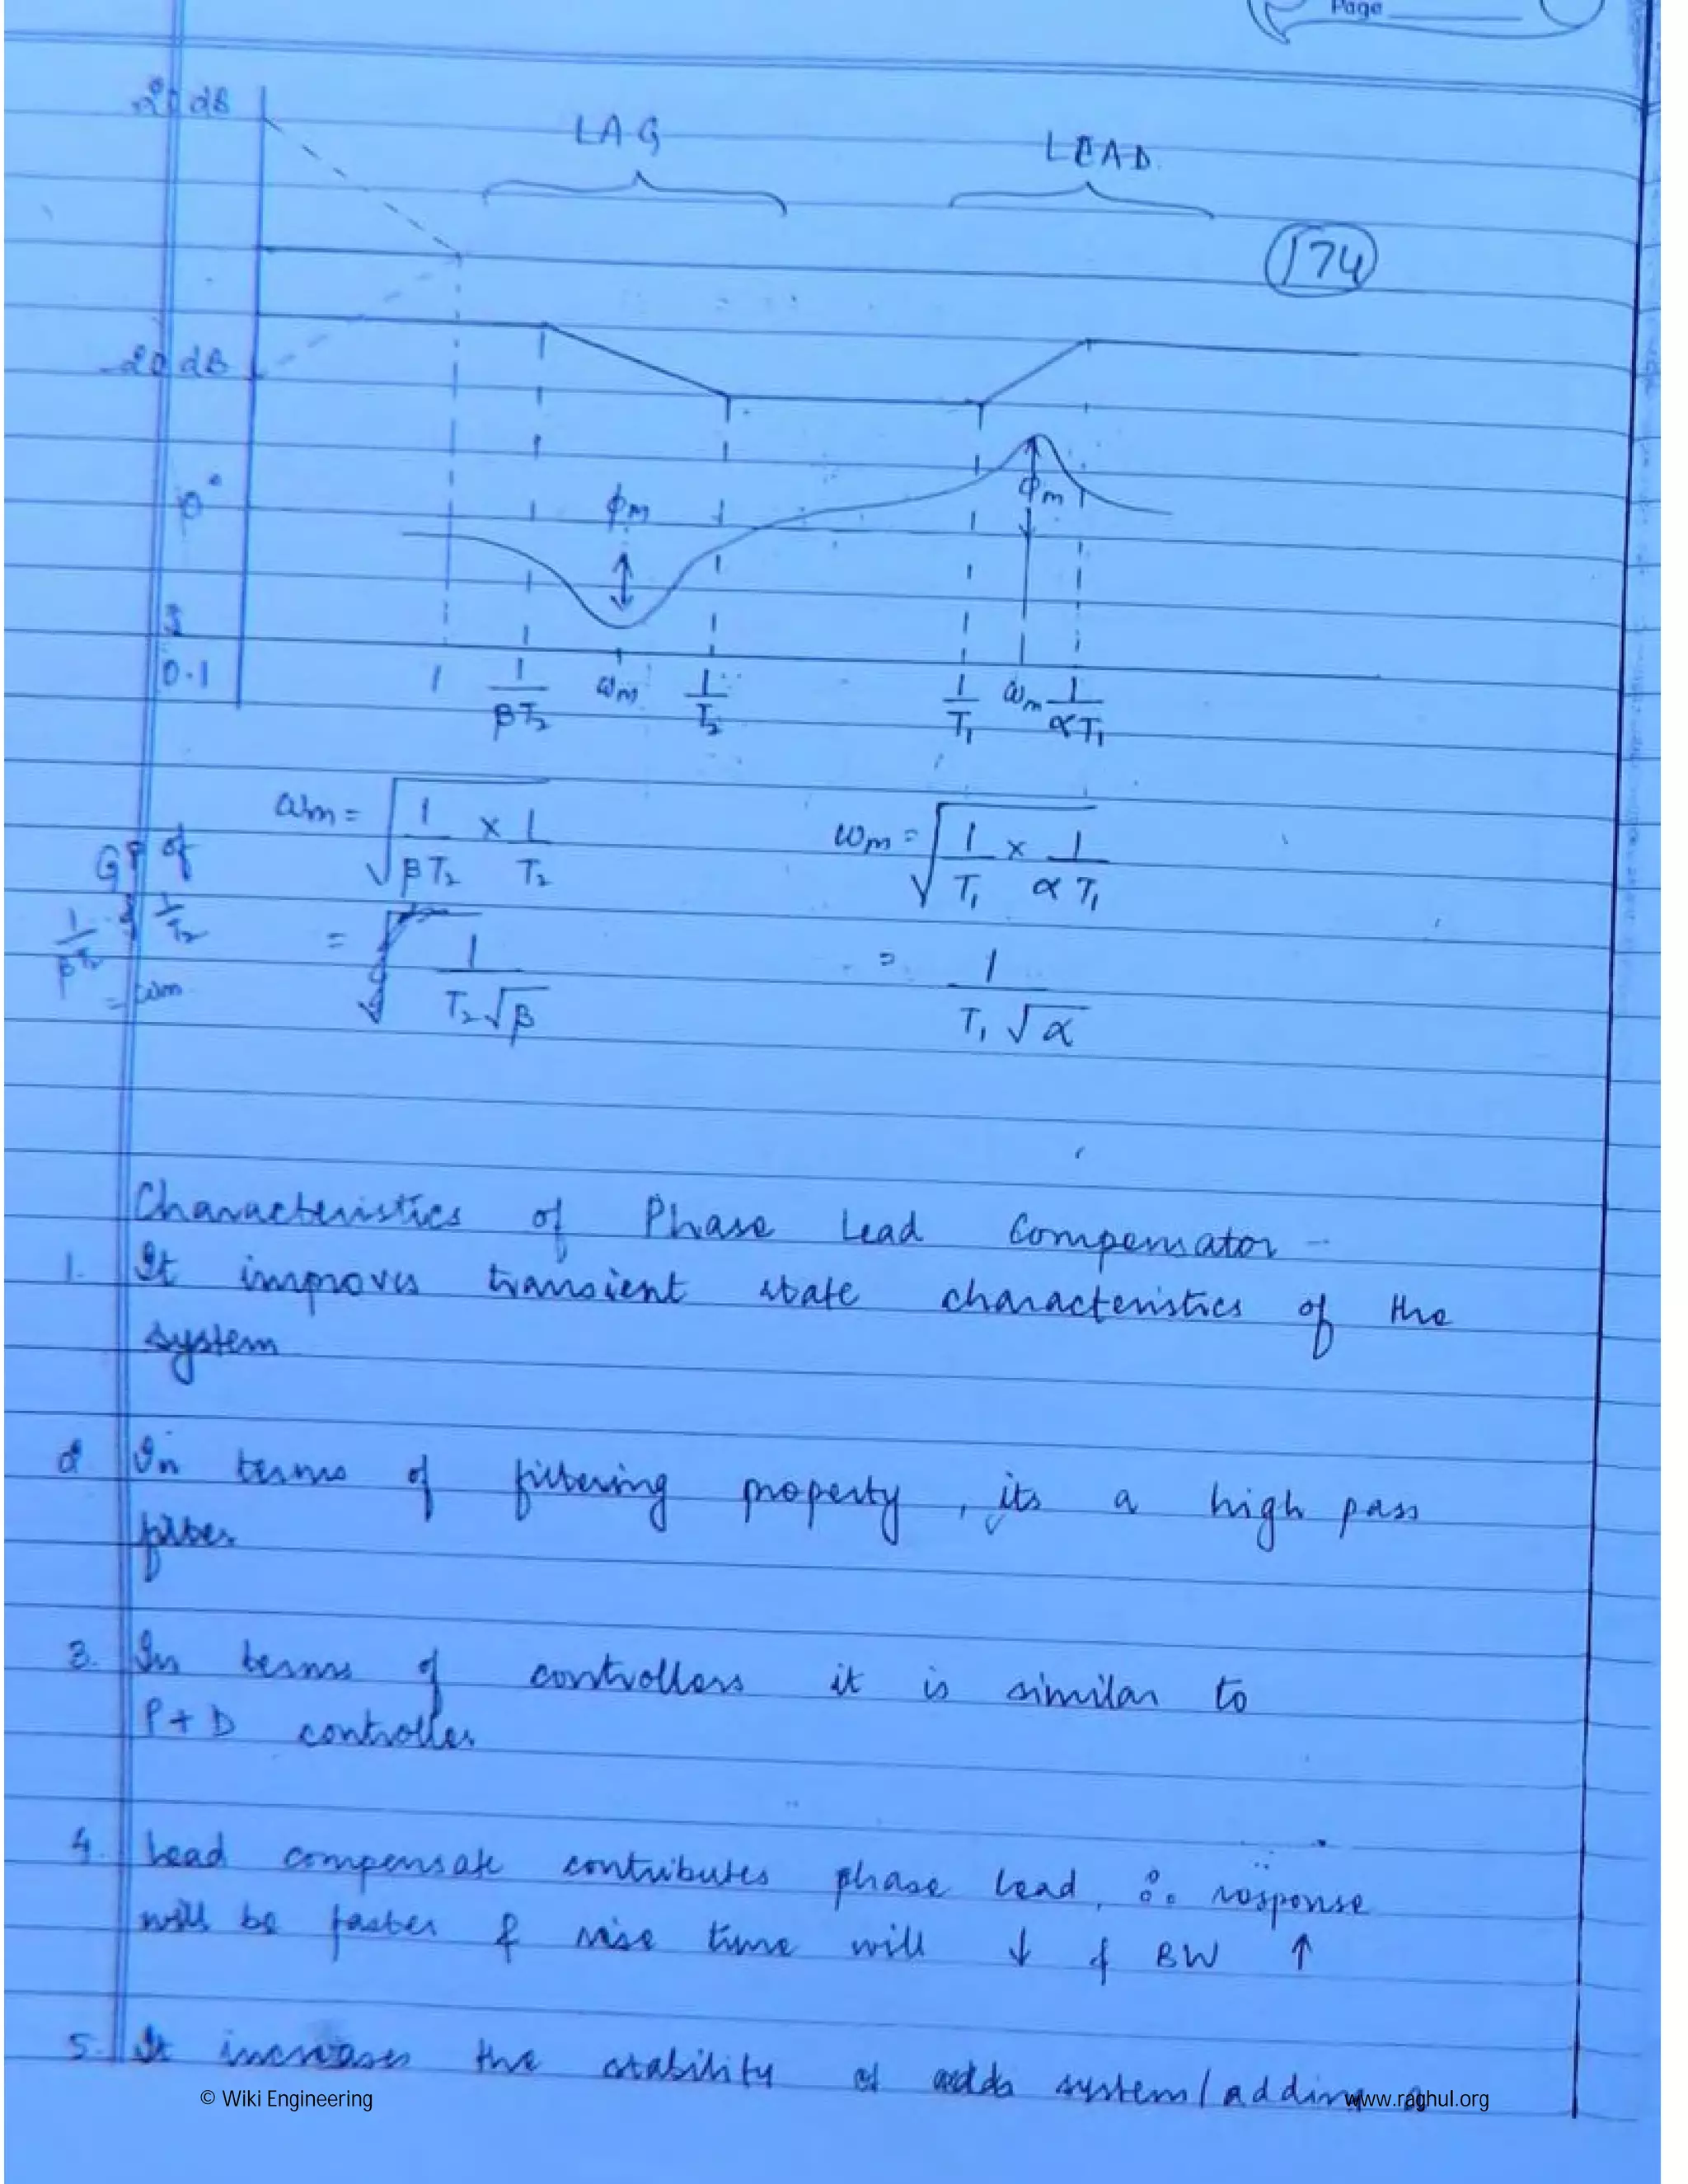 Page
20 dB
LAG
LEAD
174
-20 dB
0°
ϕm
ϕm
0.1
1
1/βT₂
ωm
1/T₂
1/T₁
ωm
1/αT₁
ωm = √(1/βT₂ × 1/T₂)
ωm = √(1/T₁ × 1/αT₁)
GP of
1/βT₂ & 1/T₂
= ωm
= 1/T₂√β
= 1/T₁√α
Characteristics of Phase Lead Compensator -
1. It improves transient state characteristics of the
system
2 In terms of filtering property, its a high pass
filter
3. In terms of controllers it is similar to
P+D controller
4. Lead compensate contributes phase lead, ∴ response
will be faster & rise time will ↓ & BW ↑
5. It increases the stability of system/adding a
© Wiki Engineering
www.raghul.org